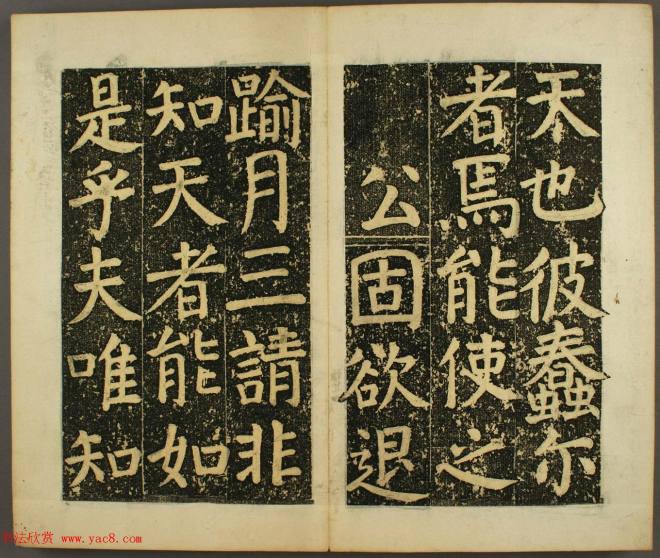 天也彼蠢尔
者焉能使之
公固欲退
踰月三請非
知天者能如
是乎夫唯知
书法欣赏 www.yac8.com